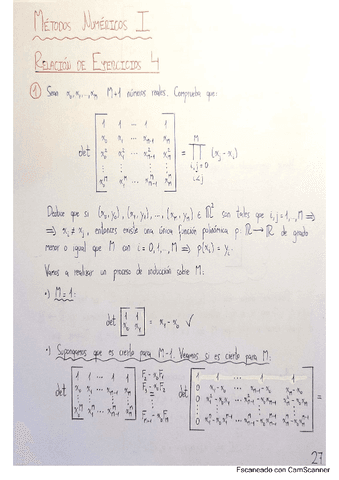 MÉTODOS NUMÉRICOS I
RELACIÓN DE EJERCICIOS 4
① Sean x₀, x₁, ..., x_M M+1 números reales. Comprueba que:
det [1 1 ... 1 1; x₀ x₁ ... x_{M-1} x_M; x₀² x₁² ... x²_{M-1} x²_M; ⋮; x₀^M x₁^M ... x^M_{M-1} x^M_M] = ∏_{i,j=0, i<j}^M (x_j - x_i)
Deduce que si (x₀, y₀), (x₁, y₁), ..., (x_M, y_M) ∈ ℝ² son tales que i, j = 1, ..., M ⟹
⟹ x_i ≠ x_j, entonces existe una única función polinómica p: ℝ → ℝ de grado
menor o igual que M con i = 0, 1, ..., M ⟹ p(x_i) = y_i.
Vamos a realizar un proceso de inducción sobre M:
•) M = 1:
det [1 1; x₀ x₁] = x₁ - x₀ ✓
•) Supongamos que es cierto para M-1. Veamos si es cierto para M:
det [1 1 ... 1 1; x₀ x₁ ... x_{M-1} x_M; ⋮; x₀^M x₁^M ... x^M_{M-1} x^M_M]
27
Escaneado con CamScanner